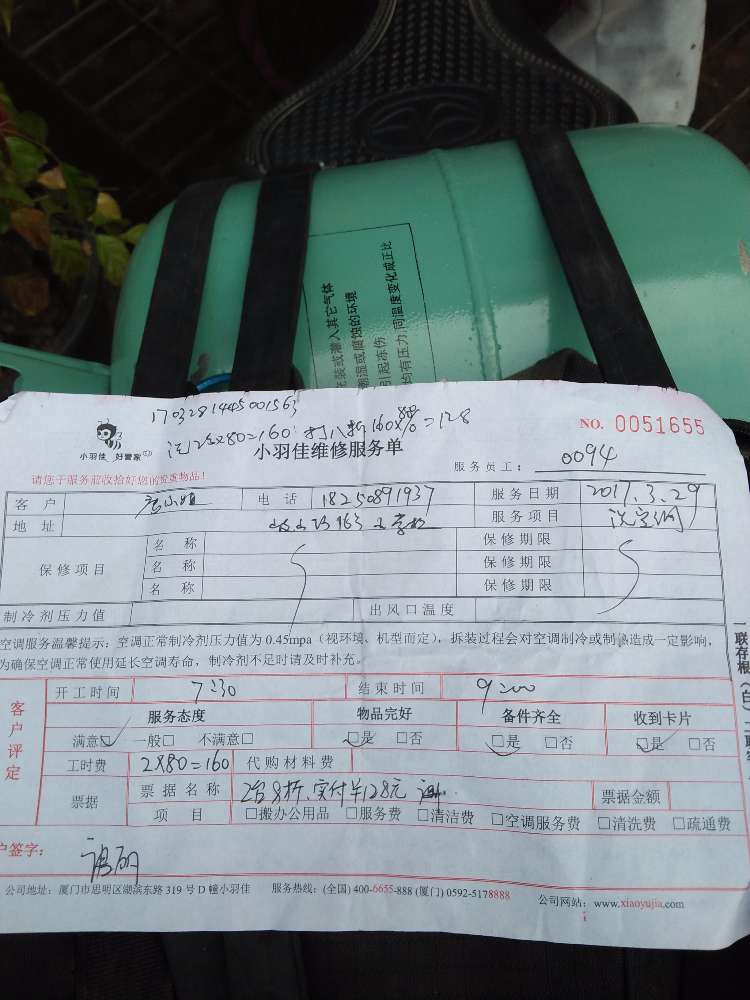 充装或灌入其它气体
潮湿或腐蚀的环境
引起冻伤
均有压力,同温度变化成正比
1703281445001563
洗2台x80=160 打八折160x80%=128
小羽佳 好管家
小羽佳维修服务单
NO. 0051655
服务员工: 0094
请您于服务前收拾好您的贵重物品!
客户 电话 18250891937 服务日期 2017.3.29
地址 163 服务项目 洗空调
保修项目 名称 保修期限
名称 保修期限
名称 保修期限
制冷剂压力值 出风口温度
空调服务温馨提示:空调正常制冷剂压力值为 0.45mpa(视环境、机型而定),拆装过程会对空调制冷或制热造成一定影响,
为确保空调正常使用延长空调寿命,制冷剂不足时请及时补充。
一联存根(白)
客户评定
开工时间 7:30 结束时间 9:00
服务态度 物品完好 备件齐全 收到卡片
满意☑ 一般□ 不满意□ ☑是 □否 ☑是 □否 ☑是 □否
工时费 2X80=160 代购材料费
票据 票据名称 2台8折,实付羊128元 票据金额
项目 □搬办公用品 □服务费 □清洁费 □空调服务费 □清洗费 □疏通费
户签字:
公司地址:厦门市思明区湖滨东路 319 号 D 幢小羽佳 服务热线:(全国) 400-6655-888 (厦门) 0592-5178888 公司网站:www.xiaoyujia.com